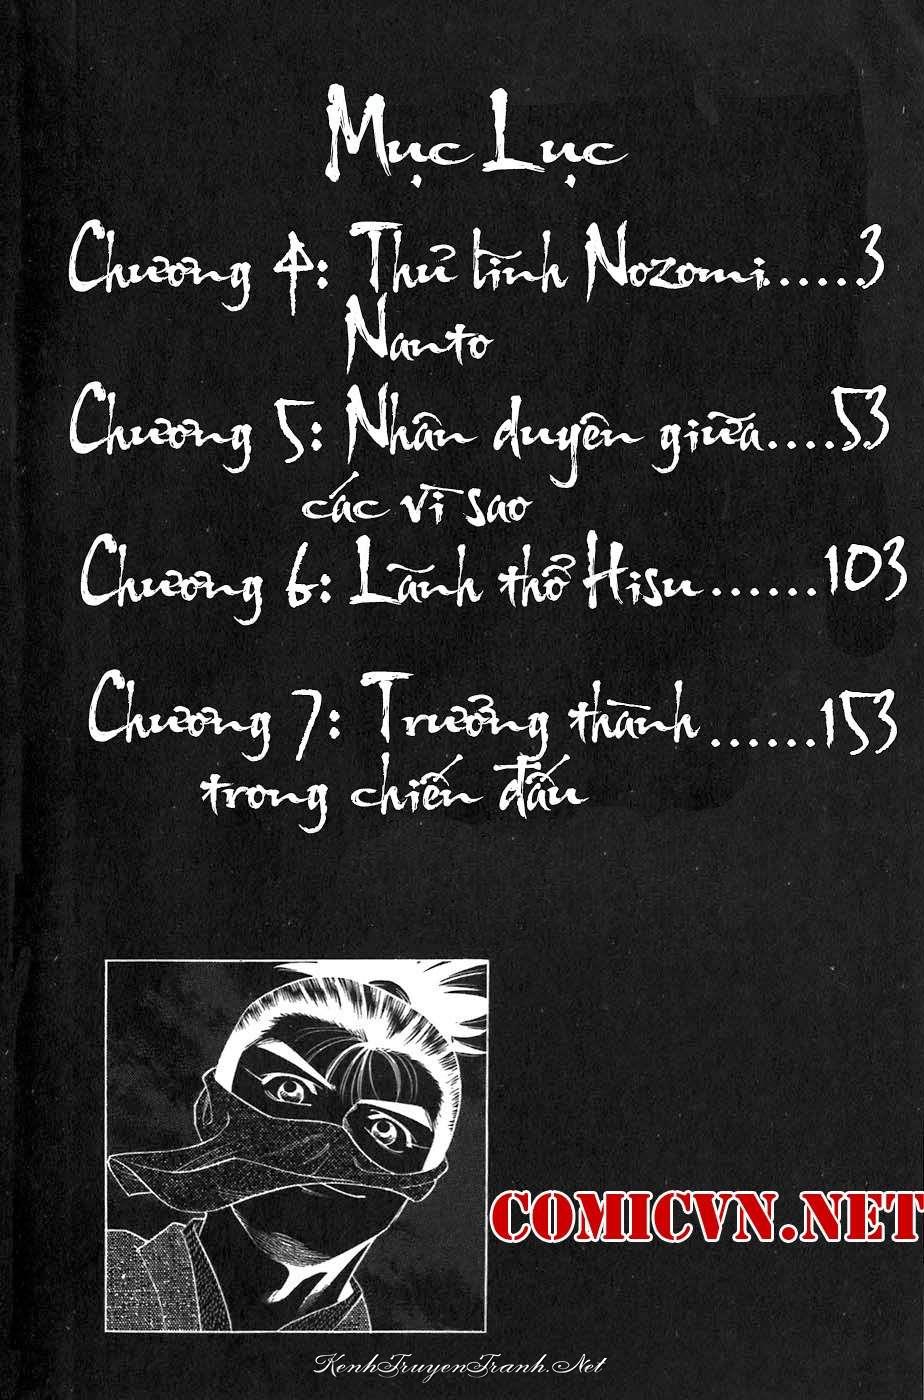 Mục Lục
Chương 4: Thủ lĩnh Nozomi.....3
Nanto
Chương 5: Nhân duyên giữa....53
các vì sao
Chương 6: Lãnh thổ Hisu......103
Chương 7: Trưởng thành ......153
trong chiến đấu
COMICVN.NET
KenhTruyenTranh.Net